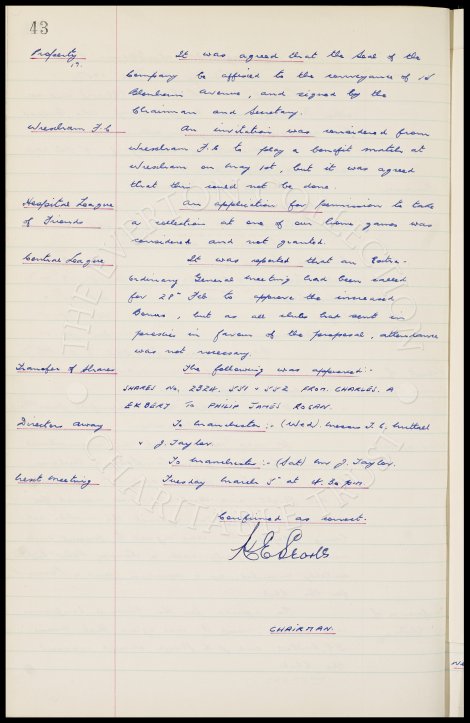 43
Property
17.
It was agreed that the Seal of the
Company be affixed to the conveyance of 16
Blenheim Avenue, and signed by the
Chairman and Secretary.
Wrexham F.C
An invitation was considered from
Wrexham F.C to play a benefit match at
Wrexham on May 1st, but it was agreed
that this could not be done.
Hospital League
of Friends
An application for permission to take
a collection at one of our home games was
considered and not granted.
Central League
It was reported that an Extra-
ordinary General Meeting had been called
for 28th Feb to approve the increased
Bonus, but as all clubs had sent in
proxies in favour of the proposal, attendance
was not necessary.
Transfer of Shares
The following was approved:-
SHARES No. 2324, 551 & 552 FROM CHARLES. A
EKBERY TO PHILIP JAMES ROGAN.
Directors away
To Manchester:- (Wed) Messrs T.C. Nuttall
& J. Taylor.
To Manchester:- (Sat) Mr J. Taylor.
Next Meeting
Tuesday March 5th at 4.30pm
Confirmed as correct.
CHAIRMAN.
THE EVERTON COLLECTION
CHARITABLE TRUST